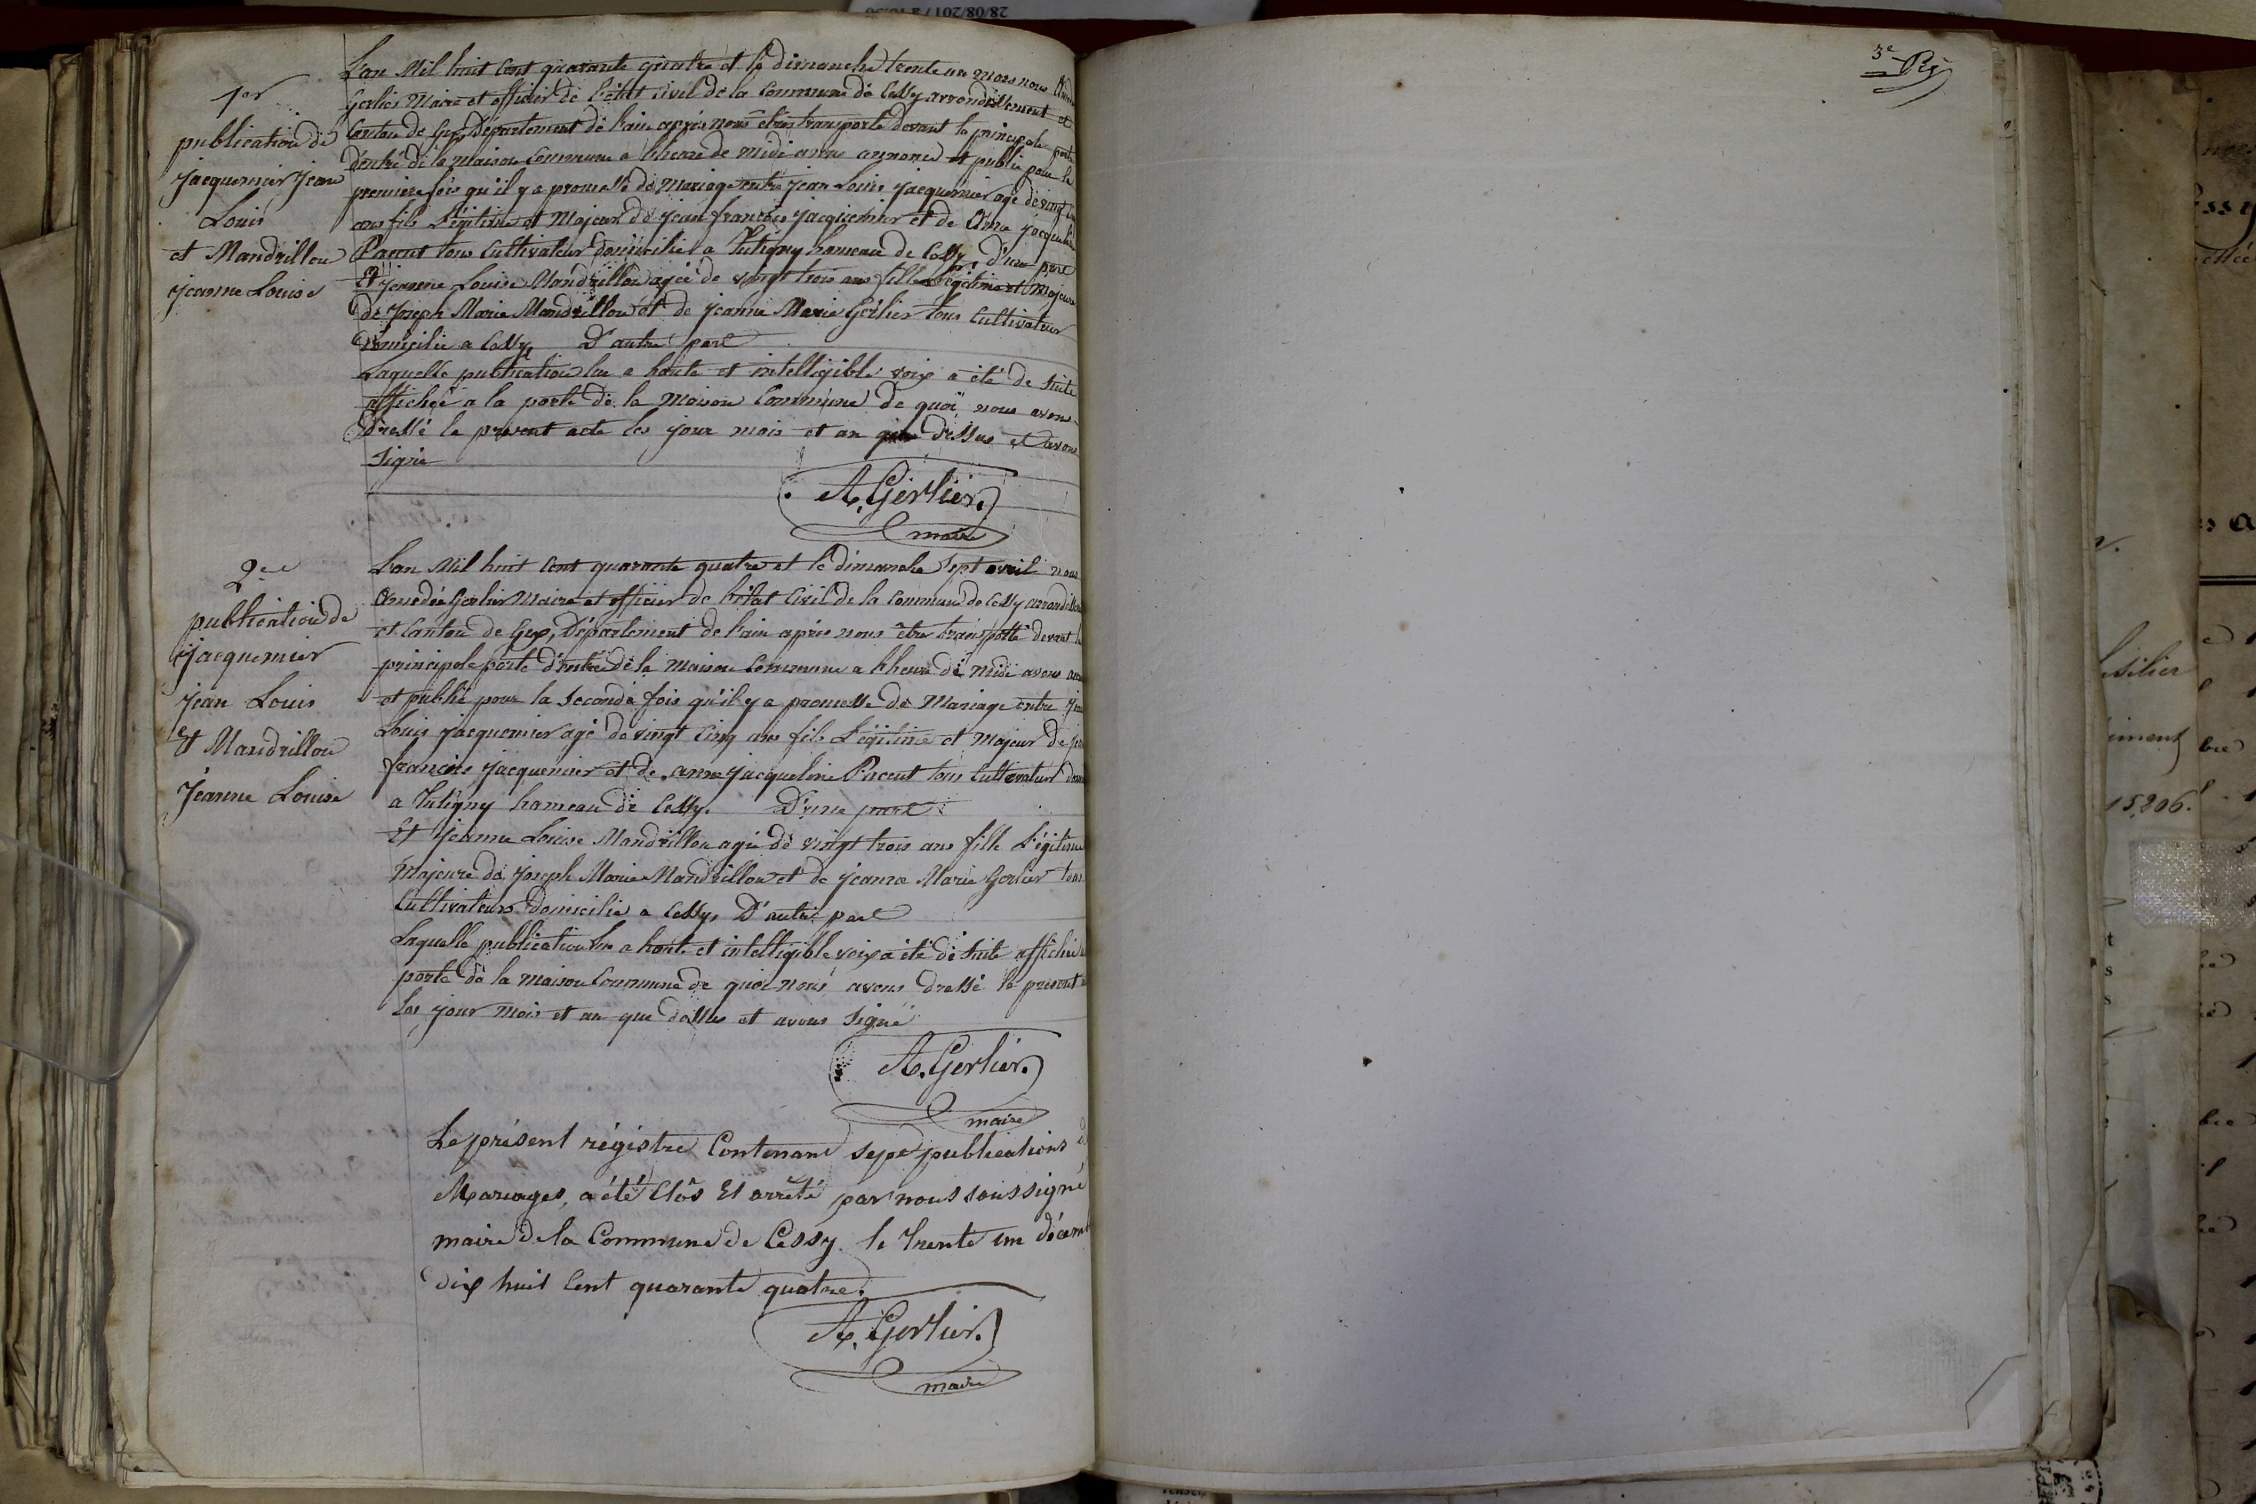 1er
publication de
jacquemier jean
Louis
et Mandrillon
jeanne Louise
L'an Mil huit Cent quarante quatre et le dimanche trente un mars nous
Gerlier Maire et officier de l'état civil de la Commune de Cessy arrondissement et
Canton de Gex, Département de l'ain après nous être transporté devant la principale porte
d'entré de la maison Commune a l'heure de midi avons annoncé et publié pour la
premiere fois qu'il y a promesse de Mariage entre jean Louis jacquemier agé de vingt
ans fils Légitime et Majeur de jean françois jacquemier et de Anne jacqueline
Pacent tous Cultivateur domicilié a Tutigny hameau de Cessy, D'une part
Et jeanne Louise Mandrillon agée de vingt trois ans fille Légitime et Majeure
de Joseph Marie Mandrillon et de jeanne Marie Gerlier tous Cultivateur
Domicilié a Cessy, D'autre part
Laquelle publication lue a haute et intelligible voix a été de suite
affichée a la porte de la Maison Commune de quoi nous avons
dressé le present acte les jour mois et an que dessus et avons
signé
A. Gerlier.
maire
2e
publication de
jacquemier
jean Louis
et Mandrillon
Jeanne Louise
L'an Mil huit Cent quarante quatre et le dimanche sept avril nous
Amedée Gerlier Maire et officier de l'état Civil de la Commune de Cessy
et Canton de Gex, Département de l'ain après nous être transporté devant la
principale porte d'entré de la Maison Commune a l'heure de midi avons
et publié pour la Seconde fois qu'il y a promesse de Mariage entre
Louis jacquemier agé de vingt cinq ans fils Légitime et Majeur de
françois jacquemier et de anne jacqueline Pacent tous Cultivateur
a Tutigny hameau de Cessy. D'une part
Et Jeanne Louise Mandrillon agée de vingt trois ans fille Légitime
Majeure de Joseph Marie Mandrillon et de jeanne Marie Gerlier tous
Cultivateurs domicilié a Cessy, D'autre part
Laquelle publication lue a haute et intelligible voix a été de suite affichée
porte de la Maison Commune de quoi nous avons dressé le present
les jour mois et an que dessus et avons signé
A. Gerlier.
maire
Le présent régistre Contenant sept publications
Mariages, a été Clôs Et arrêté par nous soussigné
maire de la Commune de Cessy. le trente un
dix huit Cent quarante quatre.
A. Gerlier.
maire
3e
15,206.